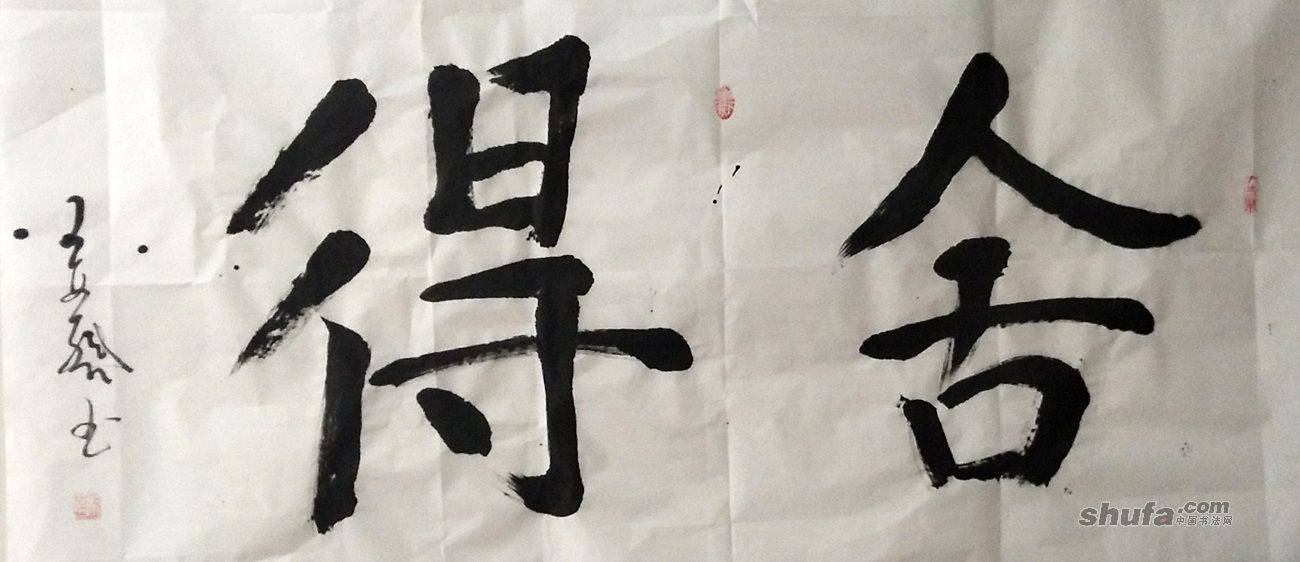 舍得
王 书
shufa.com
中国书法网